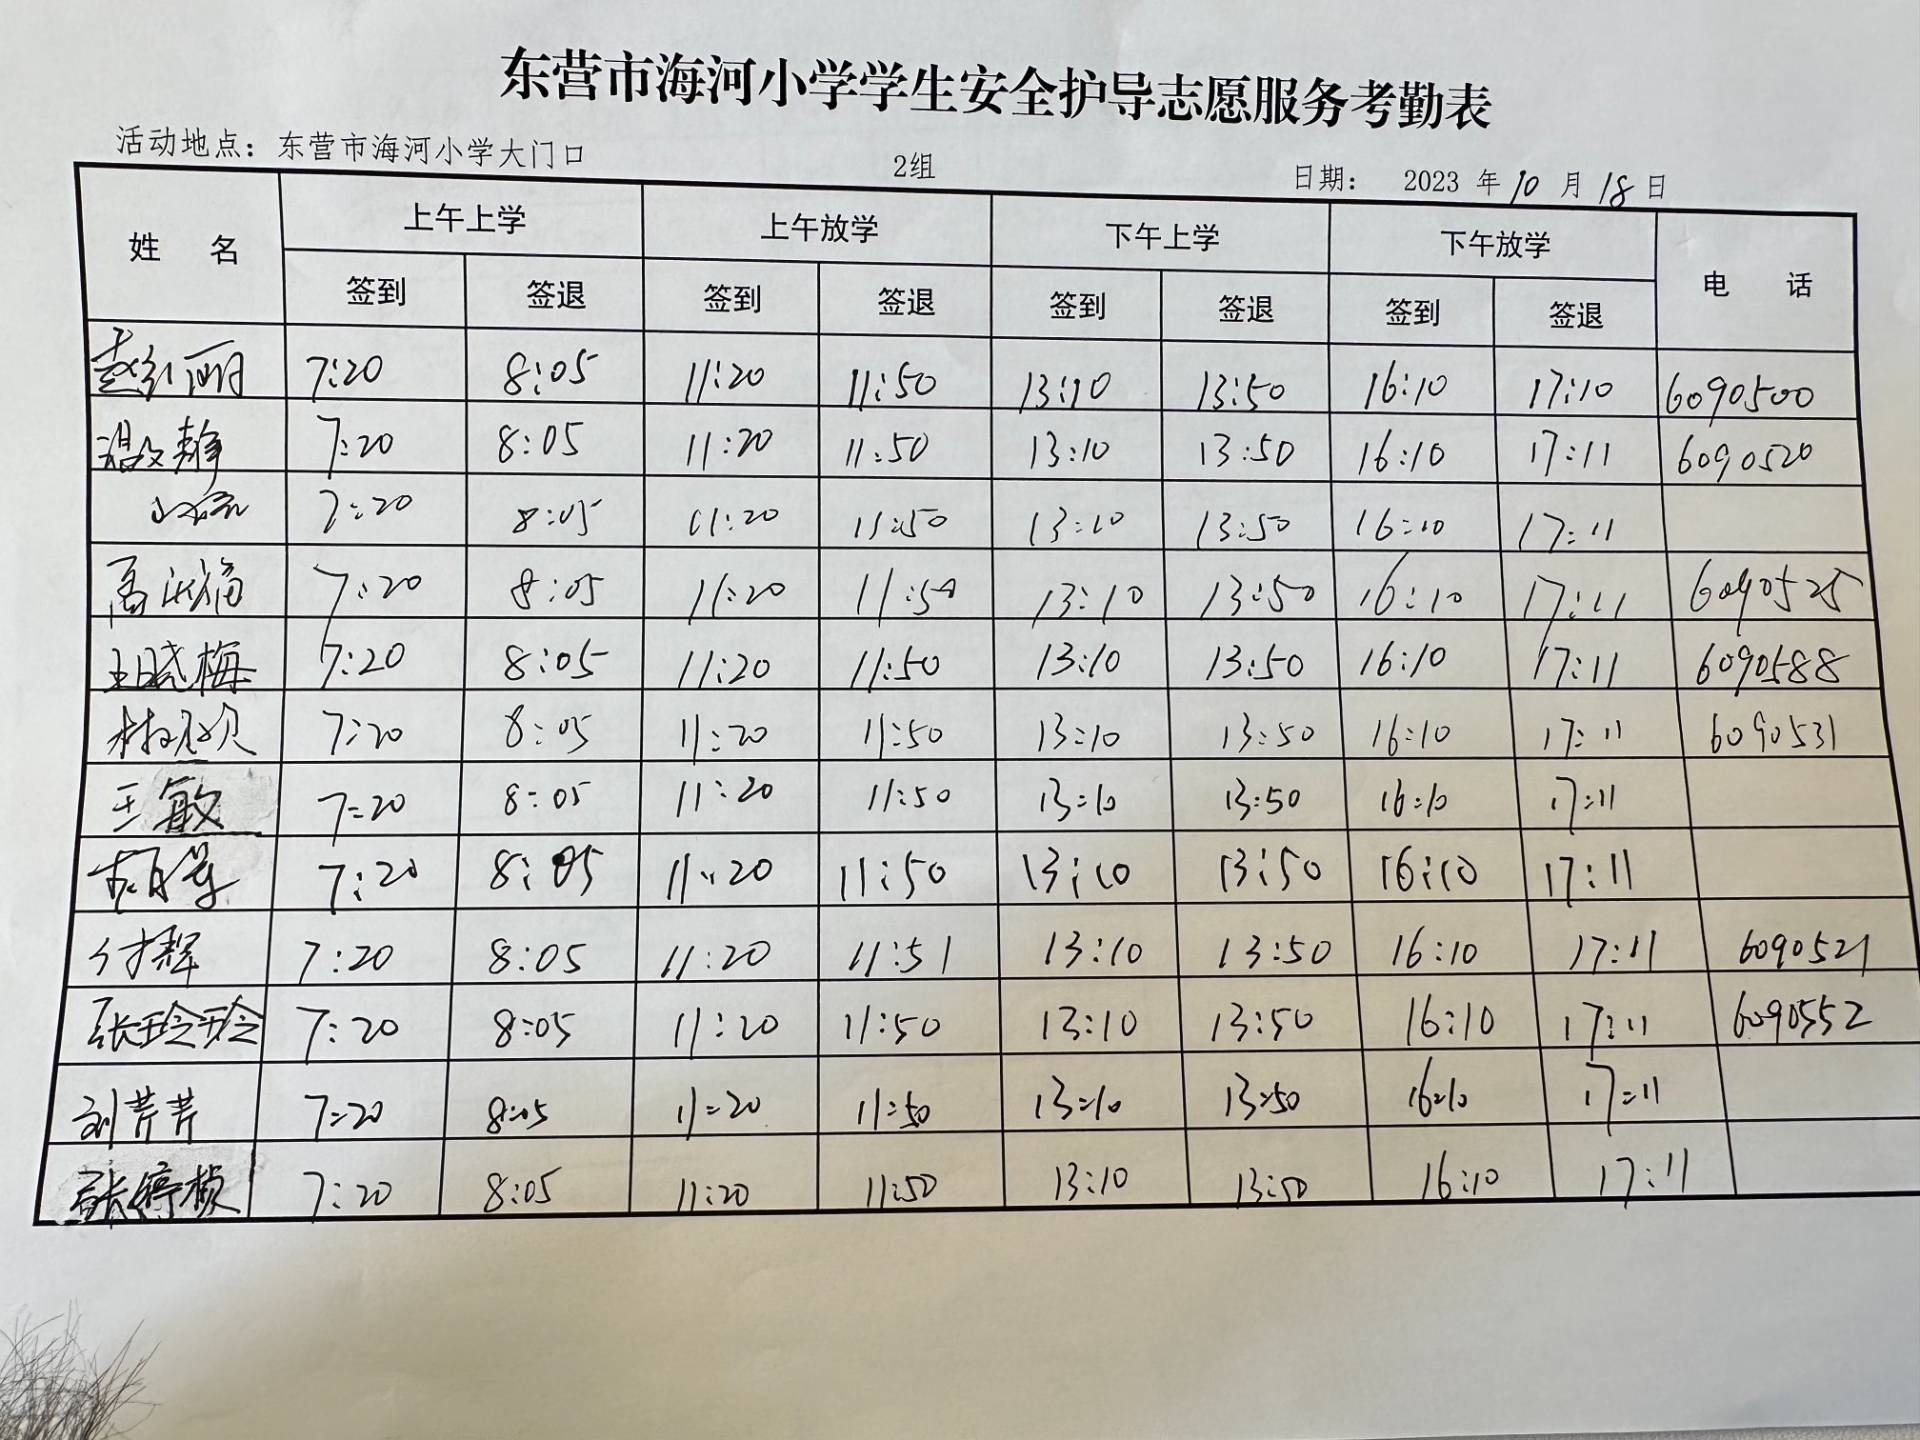 东营市海河小学学生安全护导志愿服务考勤表
活动地点：东营市海河小学大门口 2组 日期： 2023 年 10 月 18 日
姓 名 上午上学 上午放学 下午上学 下午放学 电 话
签到 签退 签到 签退 签到 签退 签到 签退
赵红丽 7:20 8:05 11:20 11:50 13:10 13:50 16:10 17:10 6090500
温文静 7:20 8:05 11:20 11:50 13:10 13:50 16:10 17:11 6090520
7:20 8:05 11:20 11:50 13:10 13:50 16:10 17:11
7:20 8:05 11:20 11:50 13:10 13:50 16:10 17:11 6090525
王晓梅 7:20 8:05 11:20 11:50 13:10 13:50 16:10 17:11 6090588
7:20 8:05 11:20 11:50 13:10 13:50 16:10 17:11 6090531
王敏 7:20 8:05 11:20 11:50 13:10 13:50 16:10 17:11
7:20 8:05 11:20 11:50 13:10 13:50 16:10 17:11
付辉 7:20 8:05 11:20 11:51 13:10 13:50 16:10 17:11 6090521
张玲玲 7:20 8:05 11:20 11:50 13:10 13:50 16:10 17:11 6090552
刘芹芹 7:20 8:05 11:20 11:50 13:10 13:50 16:10 17:11
张婷桢 7:20 8:05 11:20 11:50 13:10 13:50 16:10 17:11